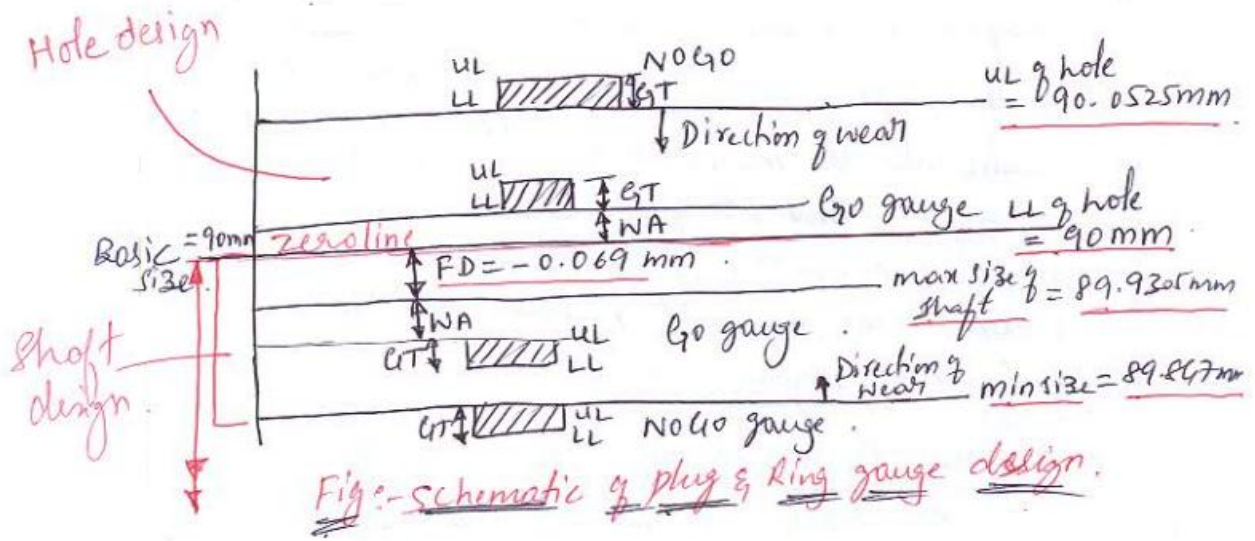 Hole design
UL
LL
NOGO
GT
UL of hole
= 90.0525mm
Direction of wear
UL
LL
GT
Go gauge
LL of hole
= 90mm
WA
Basic size = 90mm
zeroline
FD = -0.069 mm.
max size of shaft = 89.9305mm
WA
GT
UL
LL
Go gauge.
Shaft design.
Direction of wear
min size = 89.847mm
GT
UL
LL
NOGO gauge.
Fig:- schematic of plug & Ring gauge design.